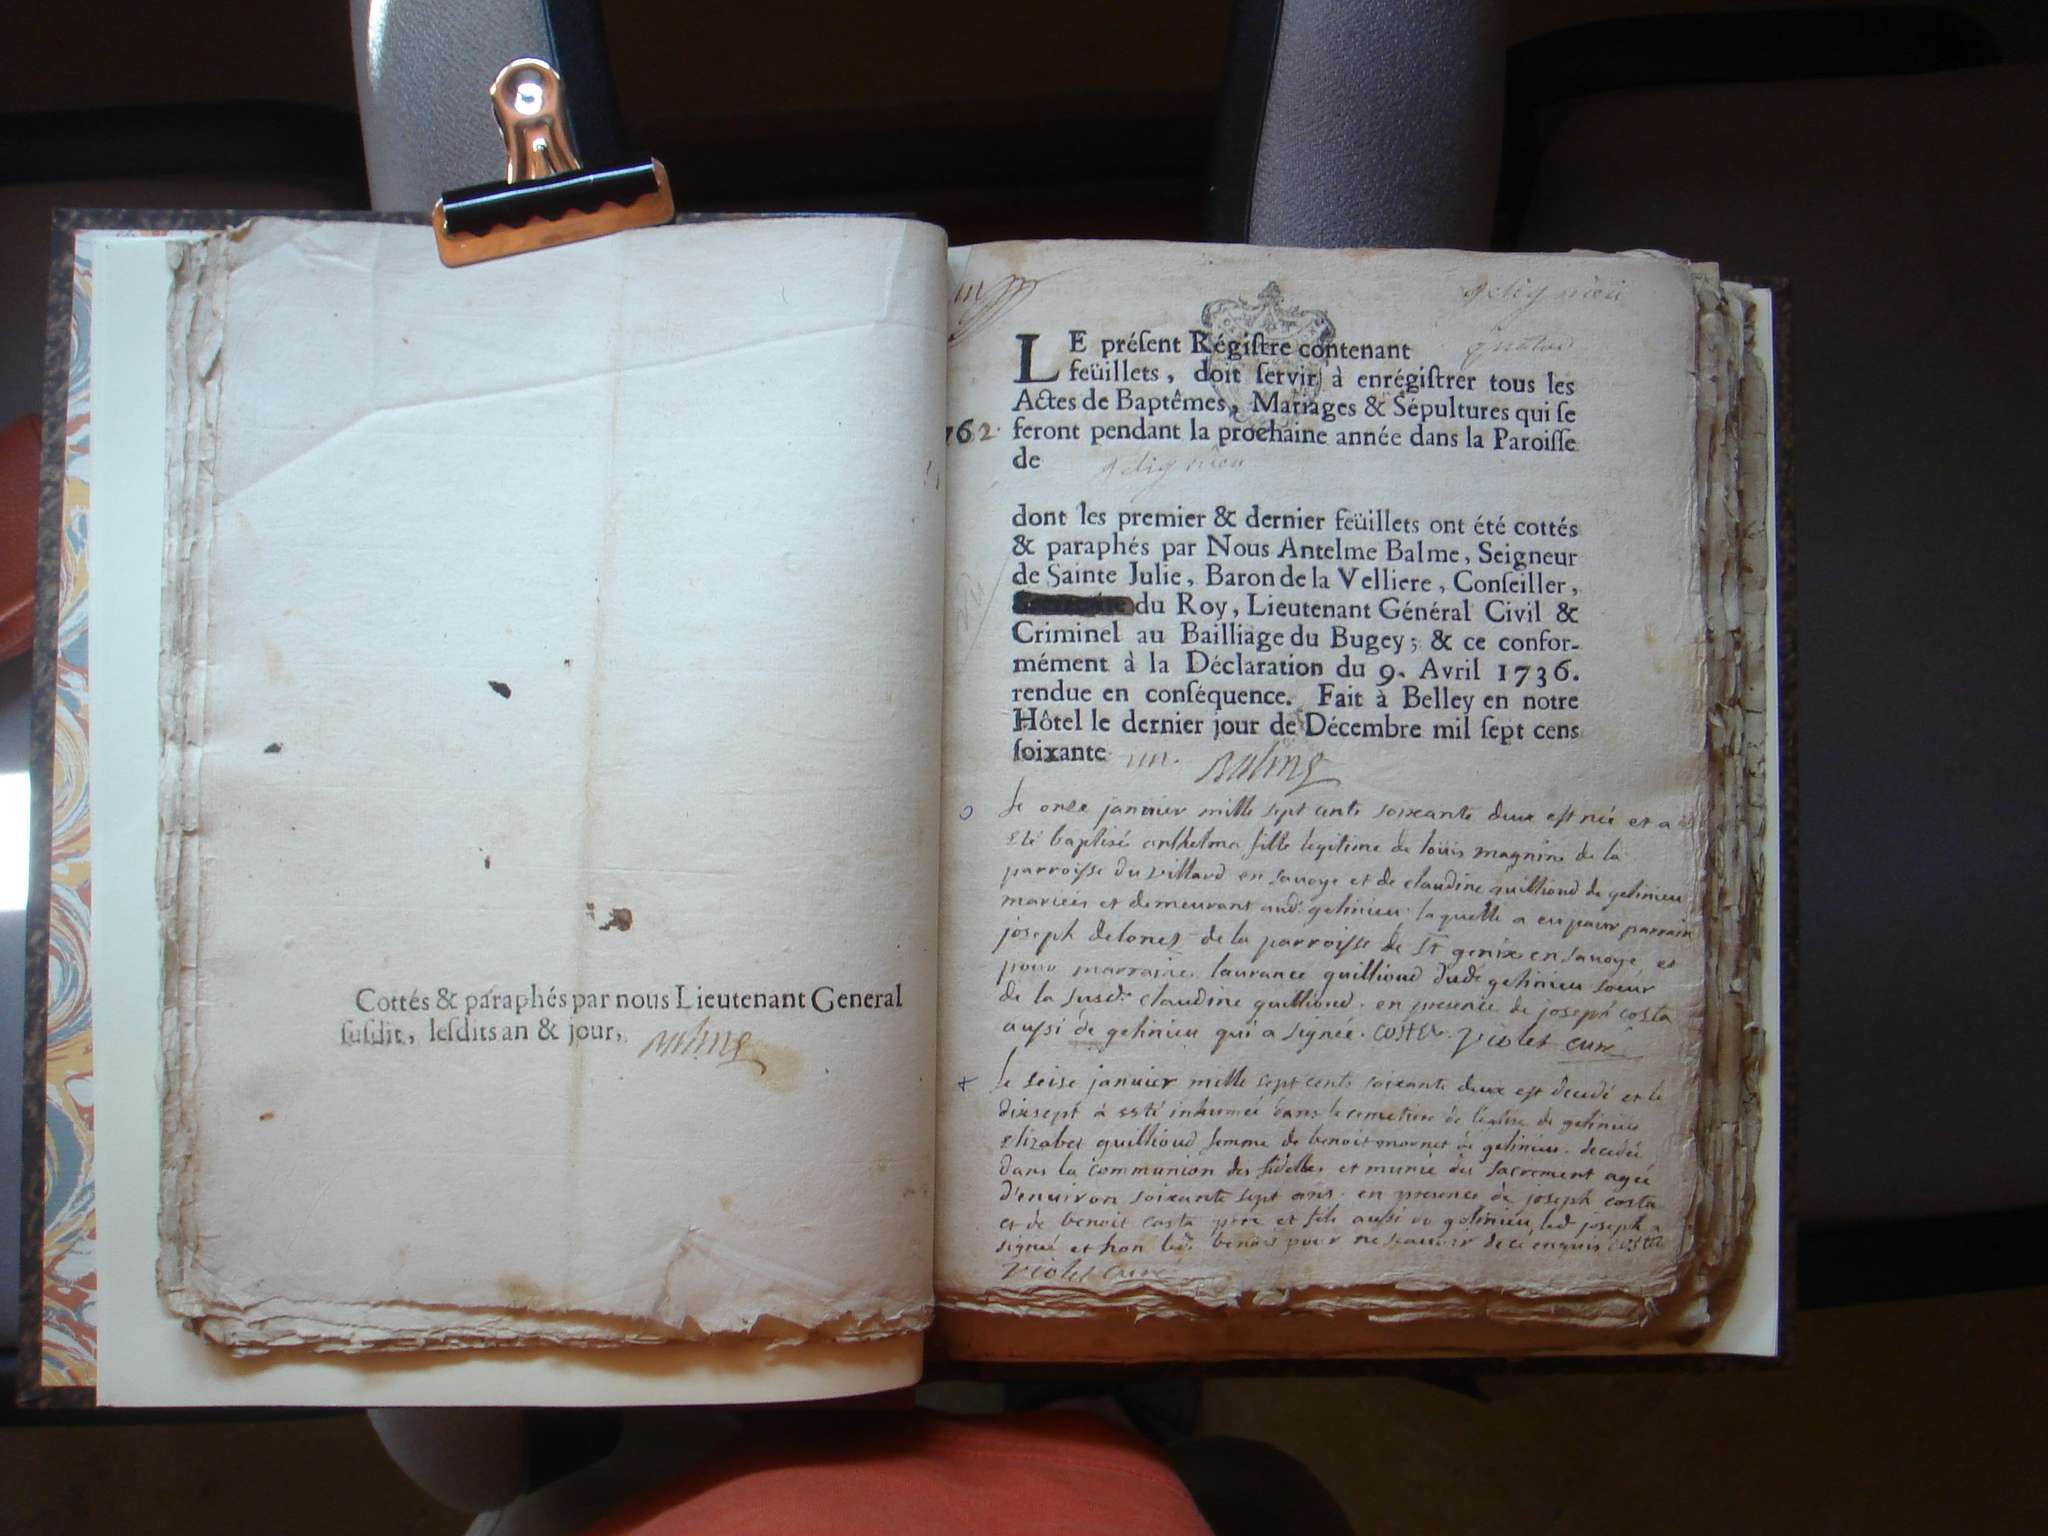 Cottés & paraphés par nous Lieutenant General
suſdit, leſdits an & jour,
LE préſent Régiſtre contenant
feüillets, doit ſervir à enrégiſtrer tous les
Actes de Baptêmes, Mariages & Sépultures qui ſe
762. feront pendant la prochaine année dans la Paroiſſe
de
dont les premier & dernier feüillets ont été cottés
& paraphés par Nous Antelme Balme, Seigneur
de Sainte Julie, Baron de la Velliere, Conſeiller,
du Roy, Lieutenant Général Civil &
Criminel au Bailliage du Bugey; & ce confor-
mément à la Déclaration du 9. Avril 1736.
rendue en conſéquence. Fait à Belley en notre
Hôtel le dernier jour de Décembre mil ſept cens
ſoixante un. Balme
le onze janvier mille sept cents soixante deux est née et a
été baptisée anthelma fille légitime de loüis magnin de la
parroisse du villard en savoye et de claudine quillioud de gelinieu
mariés et demeurant aud: gelinieu laquelle a eu pour parrain
joseph de la parroisse de St genix en savoye et
pour marraine laurance quillioud dud: gelinieu soeur
de la susd: claudine quillioud. en presence de joseph costa
aussi de gelinieu qui a signée. Coster Violet curé
+ le seise janvier mille sept cents soixante deux est decedé et le
dixsept à esté inhumée dans le cimetiere de l'eglise de gelinieu
elizabet quillioud femme de benoit mornet de gelinieu. decedée
dans la communion des fidelles et munie des sacrement agée
d'environ soixante sept ans. en presence de joseph costa
et de benoit costa pere et fils aussi de gelinieu led joseph a
signé et non led: benois pour ne scavoir de ce enquis coster
Violet curé